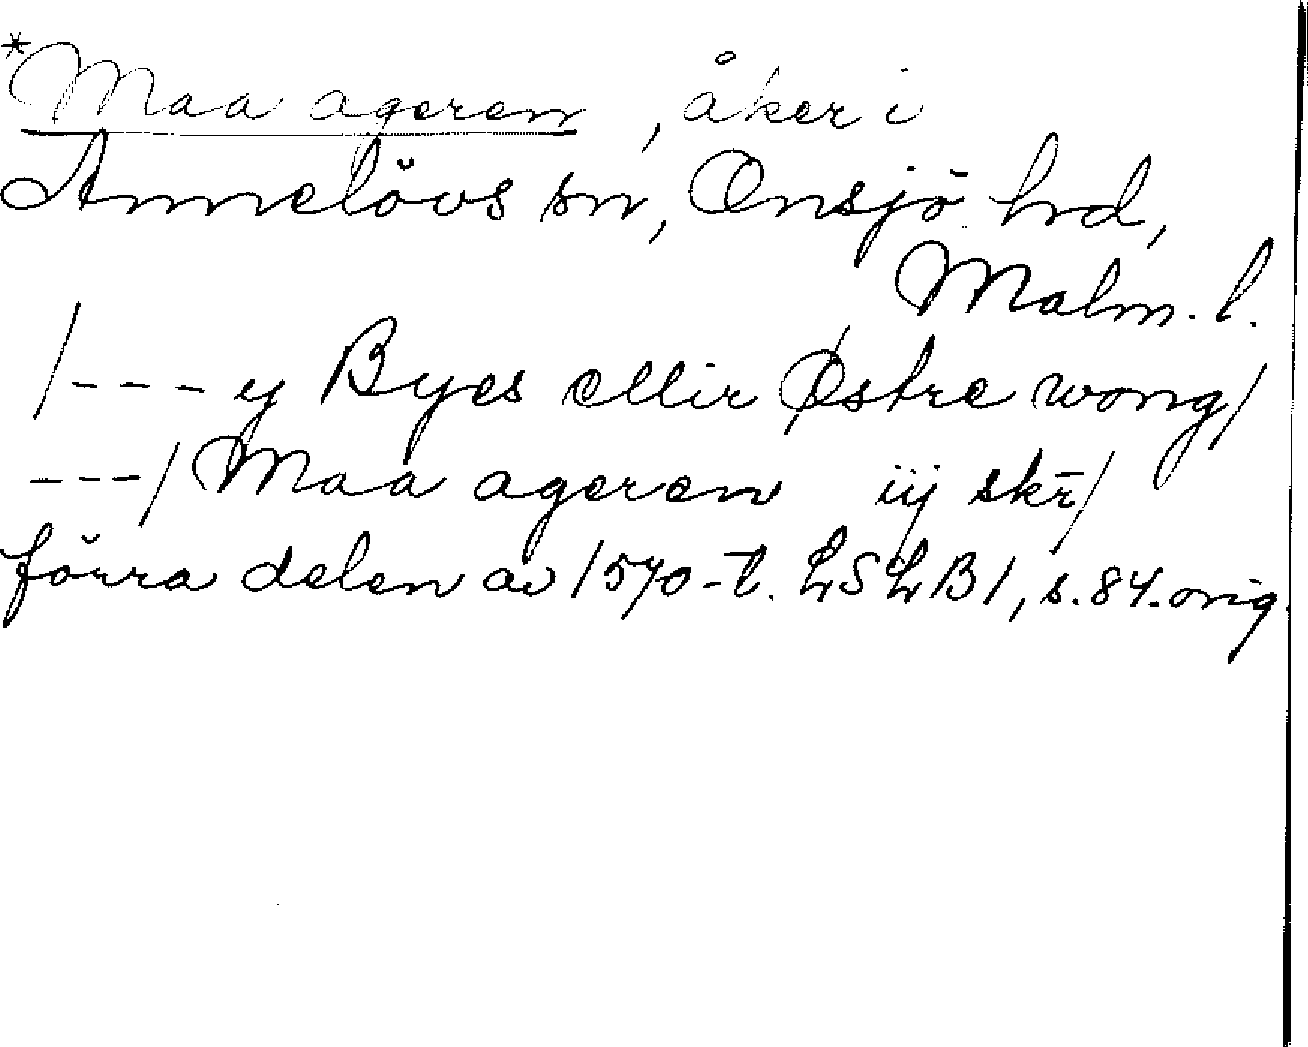 *Maa ageren, åker i
Annelövs sn, Onsjö hrd,
Malm. l.
/--- y Byes ellir Østre wong/
---/ Maa ageren iij skr̄/
förra delen av 1570-t. LSLB1, s. 84. orig.